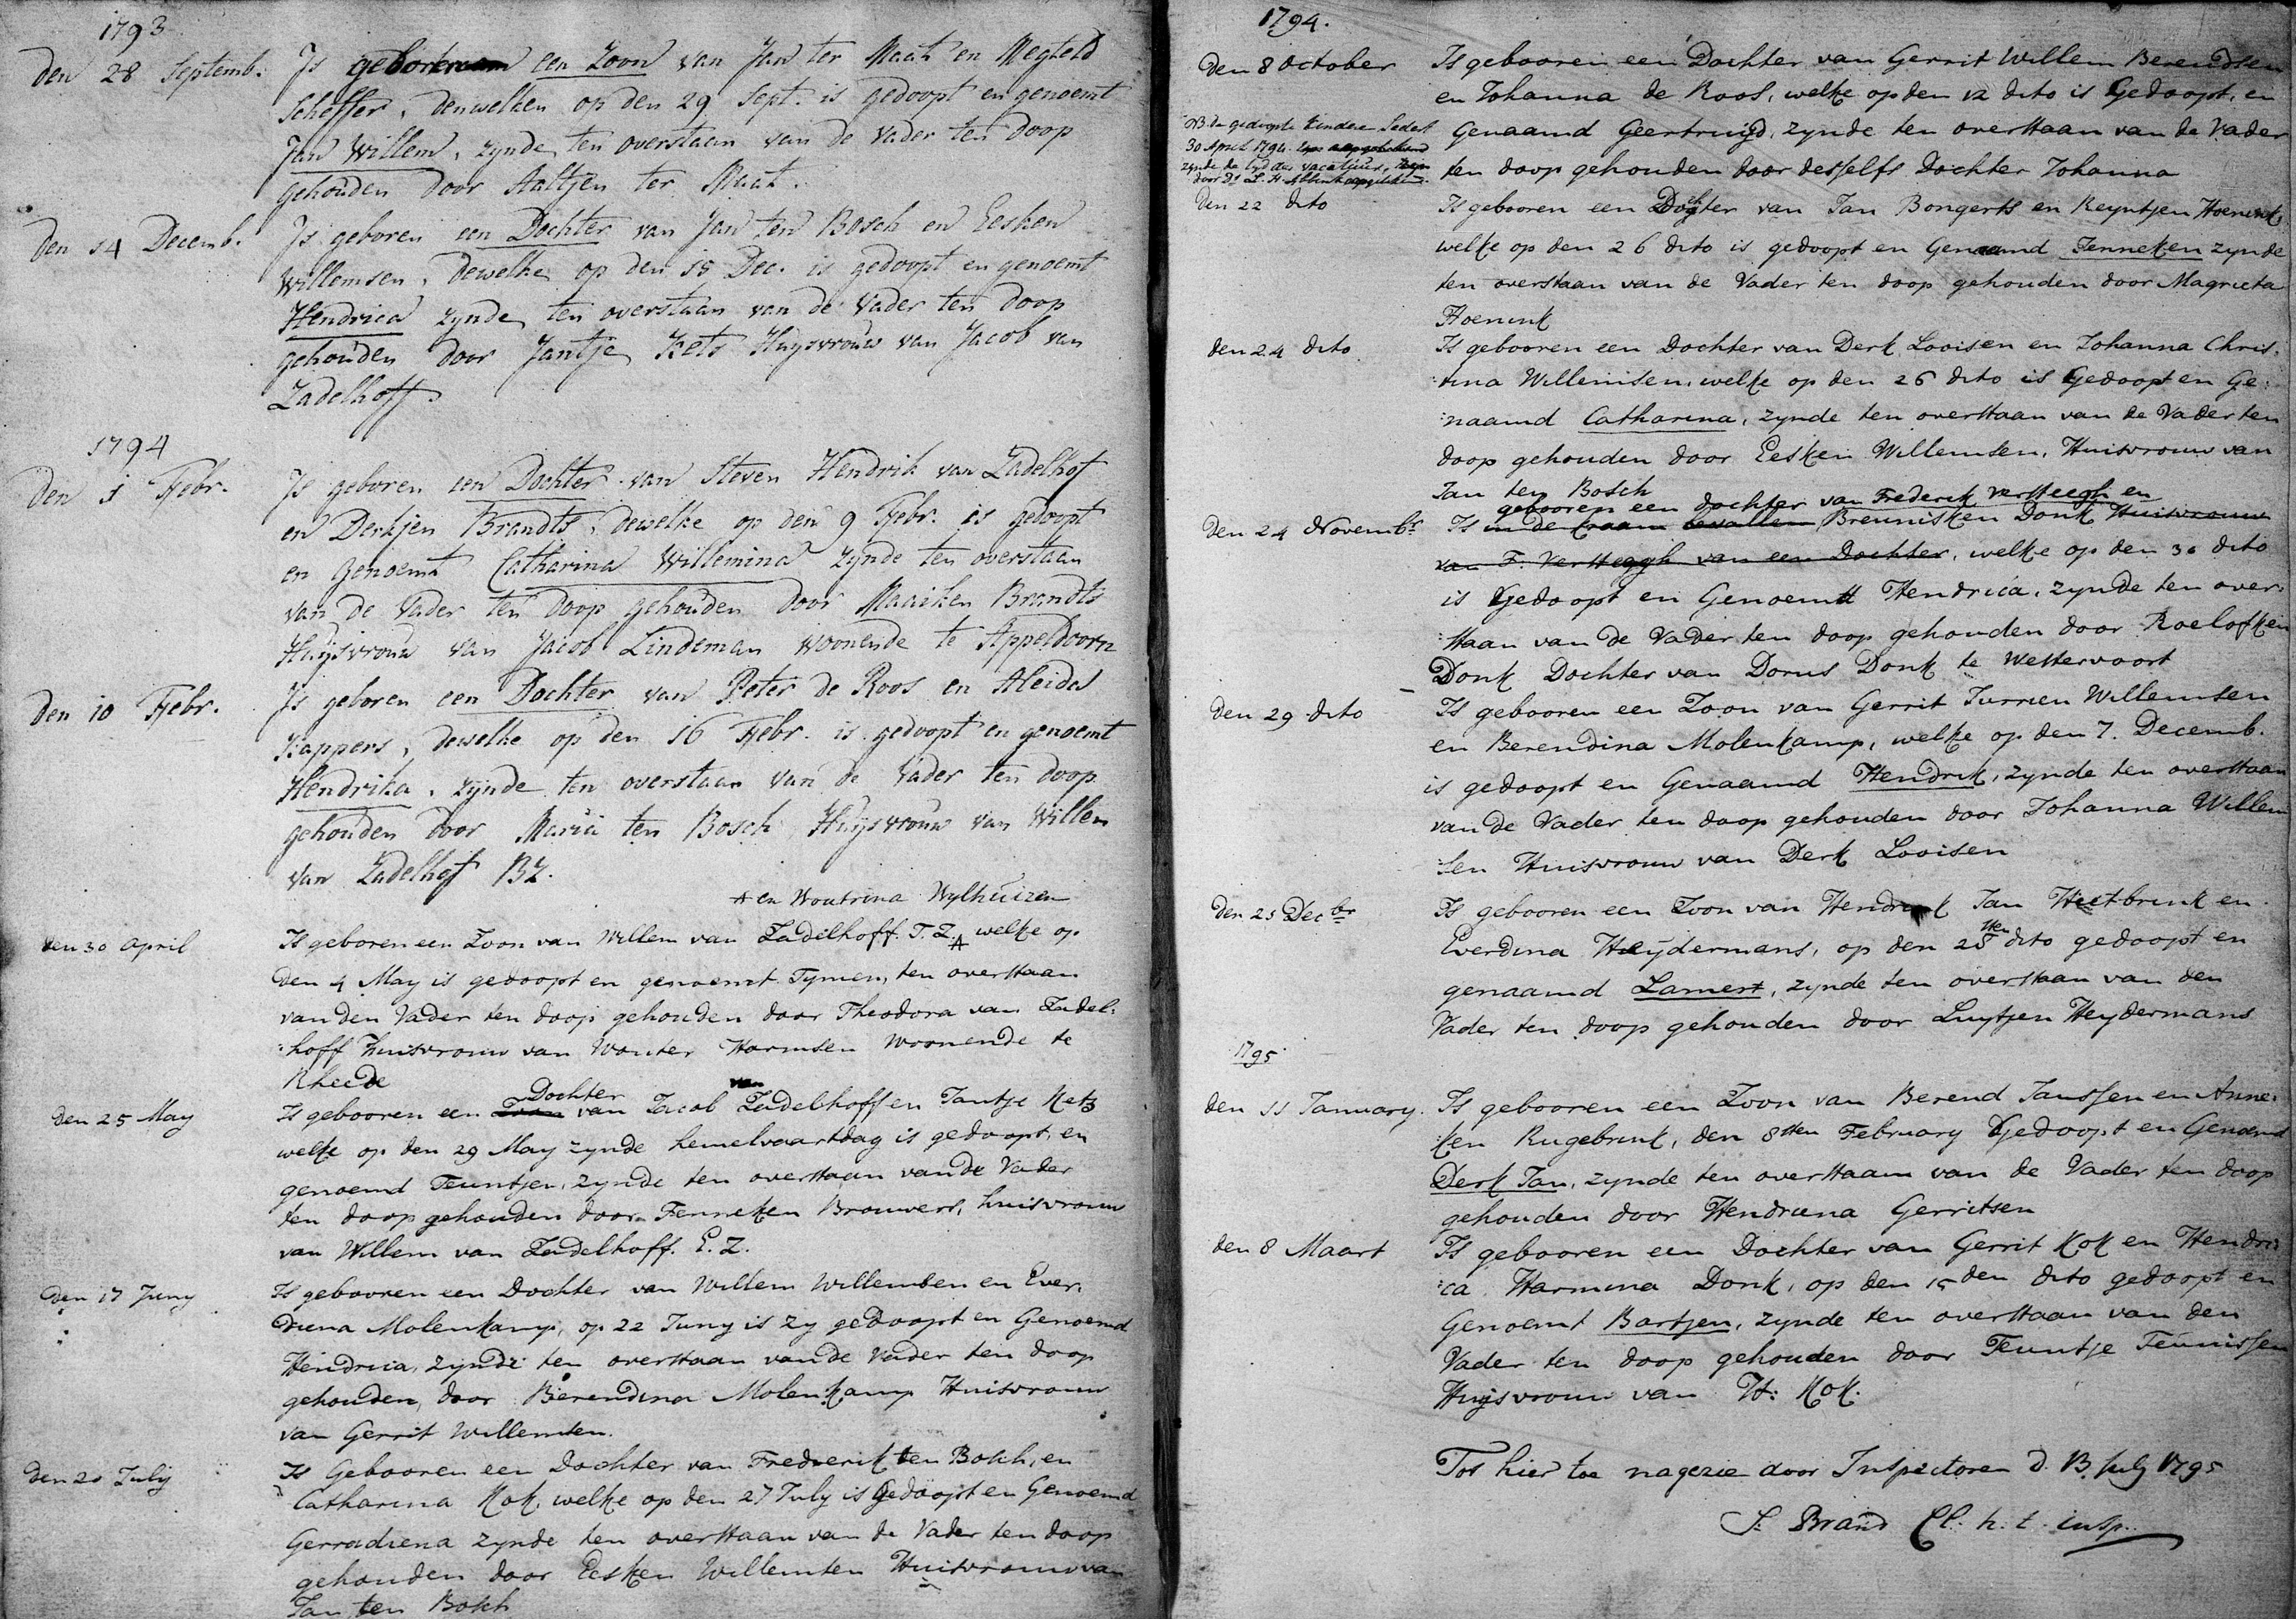 1793
den 28 Septemb. Is geboren een Zoon van Jan ter Maat en Megteld
Scheffer, denwelken op den 29 Sept. is gedoopt en genoemt
Jan Willem, zynde ten overstaan van de Vader ten doop
gehouden door Aaltjen ter Maat.
den 14 Decemb. Is geboren een Dochter van Jan ten Bosch en Eesken
Willemsen, dewelke op den 15 Dec. is gedoopt en genoemt
Hendrica zynde ten overstaan van de Vader ten doop
gehouden door Jantje Kets Huysvrouw van Jacob van
Zadelhoff.
1794
den 1 Febr. Is geboren een Dochter van Steven Hendrik van Zadelhof
en Derkjen Brandts, dewelke op den 9 Febr. is gedoopt
en genoemt Catharina Willemina zynde ten overstaan
van de Vader ten doop gehouden door Maaiken Brandts
Huysvrouw van Jacob Lindeman woonende te Appeldoorn
den 10 Febr. Is geboren een Dochter van Peter de Roos en Aleida
Kappers, dewelke op den 16 Febr. is gedoopt en genoemt
Hendrika, zynde ten overstaan van de Vader ten doop
gehouden door Maria ten Bosch Huysvrouw van Willem
van Zadelhof BZ.
A en Woutrina Wylhuizen
den 30 April Is geboren een Zoon van Willem van Zadelhoff. T. Z. A welke op
den 4 May is gedoopt en genoemt Tymen, ten overstaan
van den Vader ten doop gehouden door Theodora van Zadel-
:hoff huisvrouw van Wouter Harmsen Woonende te
Rheede
Dochter van
den 25 May Is gebooren een Zoon van Jacob Zadelhoff en Jantje Kets
welke op den 29 May zynde hemelvaartdag is gedoopt, en
genoemd Teuntjen, zynde ten overstaan van de Vader
ten doop gehouden door Fenneken Brouwers, huisvrouw
van Willem van Zadelhoff. E. Z.
den 17 Juny Is gebooren een Dochter van Willem Willemsen en Ever.
diena Molenkamp, op 22 Juny is zy gedoopt en Genoemd
Hendrica, zynde ten overstaan van de Vader ten doop
gehouden, door Berendina Molenkamp Huisvrouw
van Gerrit Willemsen.
den 20 July Is Gebooren een Dochter van Frederik ten Bosch, en
Catharina Kok, welke op den 27 July is Gedoopt en Genoemd
Gerradiena zynde ten overstaan van de Vader ten doop
gehouden door Eesken Willemsen Huisvrouw van
Jan ten Bosch
1794.
den 8 October Is gebooren een Dochter van Gerrit Willem Berendsen
en Johanna de Roos, welke op den 12 dito is Gedoopt, en
NB. de gedoopte kinderen sedert
Genaamd Geertruijd, zynde ten overstaan van de Vader
30 April 1794.
zynde de tyd der vacature,
ten doop gehouden door desselfs Dochter Johanna
door Ds L. H.
den 22 dito Is gebooren een Dochter van Jan Bongerts en Reyntjen Hoenink,
welke op den 26 dito is gedoopt en Genaamd Jenneken zynde
ten overstaan van de Vader ten doop gehouden door Magrieta
Hoenink
den 24 dito Is gebooren een Dochter van Derk Looisen en Johanna Chris,
:tina Willemsen, welke op den 26 dito is Gedoopt en Ge:
:naamd Catharina, zynde ten overstaan van de Vader ten
doop gehouden door Eesken Willemsen, Huisvrouw van
Jan ten Bosch
gebooren een dochter van Frederik Versteegh en
den 24 Novembr Is in de Craam bevallen Breunisken Donk Huisvrouw
van F. Versteegh van een Dochter, welke op den 30 dito
is Gedoopt en Genoemt Hendrica, zynde ten over:
:staan van de Vader ten doop gehouden door Roelofken
Donk Dochter van Dorus Donk te Westervoort
den 29 dito Is gebooren een Zoon van Gerrit Jurrien Willemsen
en Berendina Molenkamp, welke op den 7. Decemb.
is gedoopt en Genaamd Hendrik, zynde ten overstaan
van de Vader ten doop gehouden door Johanna Willem
:sen Huisvrouw van Derk Looisen
den 25 Decbr Is gebooren een Zoon van Hendrik Jan Heetbrink en
Everdina Heydermans, op den 28sten dito gedoopt en
genaamd Lamert, zynde ten overstaan van den
Vader ten doop gehouden door Luytjen Heydermans
1795
den 11 January. Is gebooren een Zoon van Berend Janssen en Anne:
:ken Rugebrink, den 8sten February Gedoopt en Genaemd
Derk Jan, zynde ten overstaan van de Vader ten doop
gehouden door Hendriena Gerritsen
den 8 Maart Is gebooren een Dochter van Gerrit Kok en Hendri:
:ca Harmina Donk, op den 15den dito gedoopt en
Genoemt Bartjen, zynde ten overstaan van den
Vader ten doop gehouden door Teuntje Teunissen
Huysvrouw van W: Kok.
Tot hier toe nagezie door Inspectoren d. 13 July 1795
J: Brand Cl. h. t. insp.